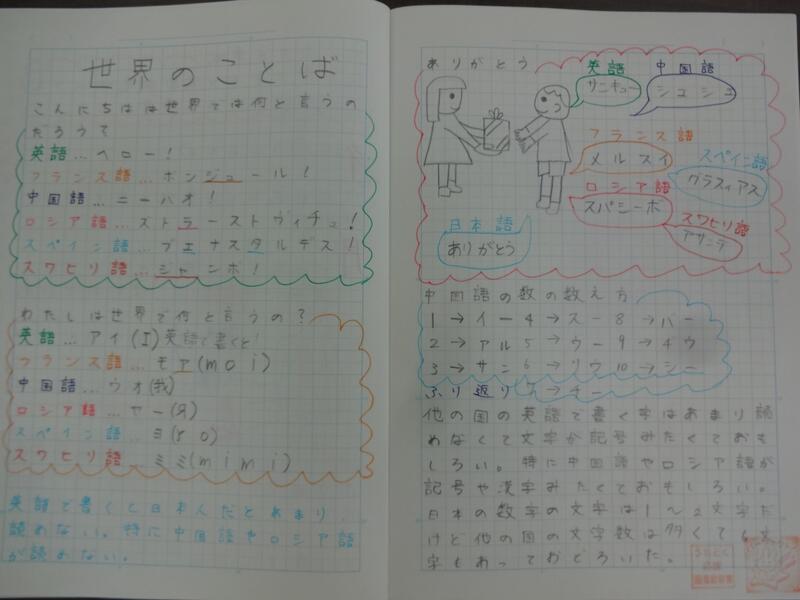 世界のことば
こんにちはは世界では何と言うの
だろう?
英語…ヘロー!
フランス語…ボンジュール!
中国語…ニーハオ!
ロシア語…ストラーストヴィチュ!
スペイン語…ブエナスタルデス!
スワヒリ語…ジャンボ!
わたしは世界で何と言うの?
英語…アイ(I)英語で書くと!
フランス語…モア(moi)
中国語…ウオ(我)
ロシア語…ヤー(Я)
スペイン語…ヨ(Yo)
スワヒリ語…ミミ(mimi)
英語で書くと日本人だとあまり
読めない。特に中国語やロシア語
が読めない。
ありがとう
英語
サンキュー
中国語
シェシェ
フランス語
メルスィ
スペイン語
グラスィアス
ロシア語
スパシーボ
スワヒリ語
アサンテ
日本語
ありがとう
中国語の数の数え方
1→イー 4→スー 8→バー
2→アル 5→ウー 9→チウ
3→サン 6→リウ 10→シー
ふり返り 7→チー
他の国の英語で書く字はあまり読
めなくて文字が記号みたくておも
しろい。特に中国語やロシア語が
記号や漢字みたくておもしろい。
日本の数字の文字は1〜2文字だ
けど他の国の文字数は多くても文
字もあっておどろいた。